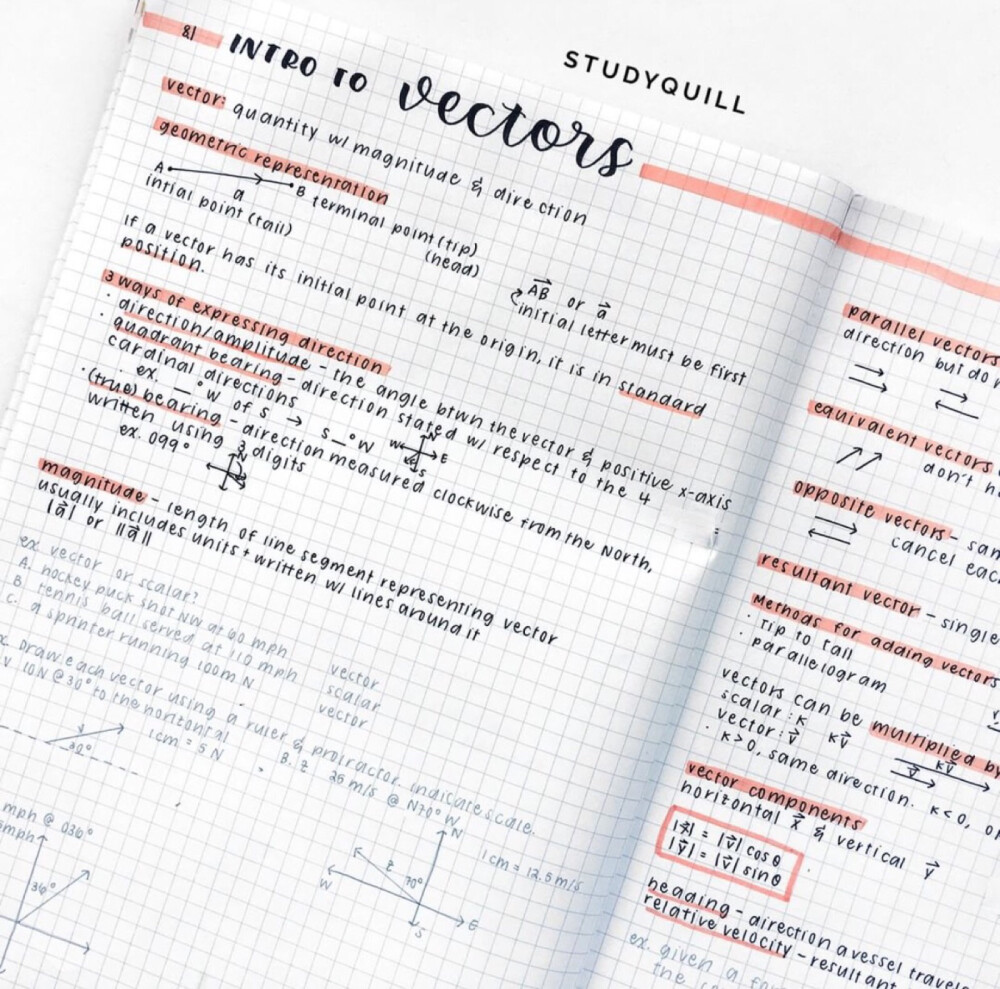 STUDYQUILL
8.1 INTRO TO vectors
vector: quantity w/ magnitude & direction
geometric representation
A B terminal point (tip)
a (head)
intial point (tail)
AB or a
initial letter must be first
If a vector has its initial point at the origin, it is in standard
position.
3 ways of expressing direction
· direction/amplitude - the angle btwn the vector & positive x-axis
· quadrant bearing - direction stated w/ respect to the 4
cardinal directions
ex. _° W of S → S_°W W N E S
· (true) bearing - direction measured clockwise from the North,
written using 3 digits
ex. 099°
magnitude - length of line segment representing vector
usually includes units + written w/ lines around it
|a| or ||a||
ex. vector or scalar?
A. hockey puck shot NW at 60 mph vector
B. tennis ball served at 110 mph scalar
C. a sprinter running 100m N vector
draw each vector using a ruler & protractor. indicate scale.
v 10N @ 30° to the horizontal
v
30°
1cm = 5 N
B. z 25 m/s @ N70°W
mph @ 036°
mph
36°
N
z 70°
W
E
S
1cm = 12.5 m/s
parallel vectors
direction but do
equivalent vectors
don't
opposite vectors -
cancel
resultant vector - single
Methods for adding vectors
· Tip to tail
· parallelogram
vectors can be multiplied by
scalar: k kv
vector: v
v kv
· k>0, same direction. k<0,
vector components
horizontal x & vertical y
|x| = |v| cosθ
|y| = |v| sinθ
heading - direction a vessel travels
relative velocity - resultant
ex. given a
the